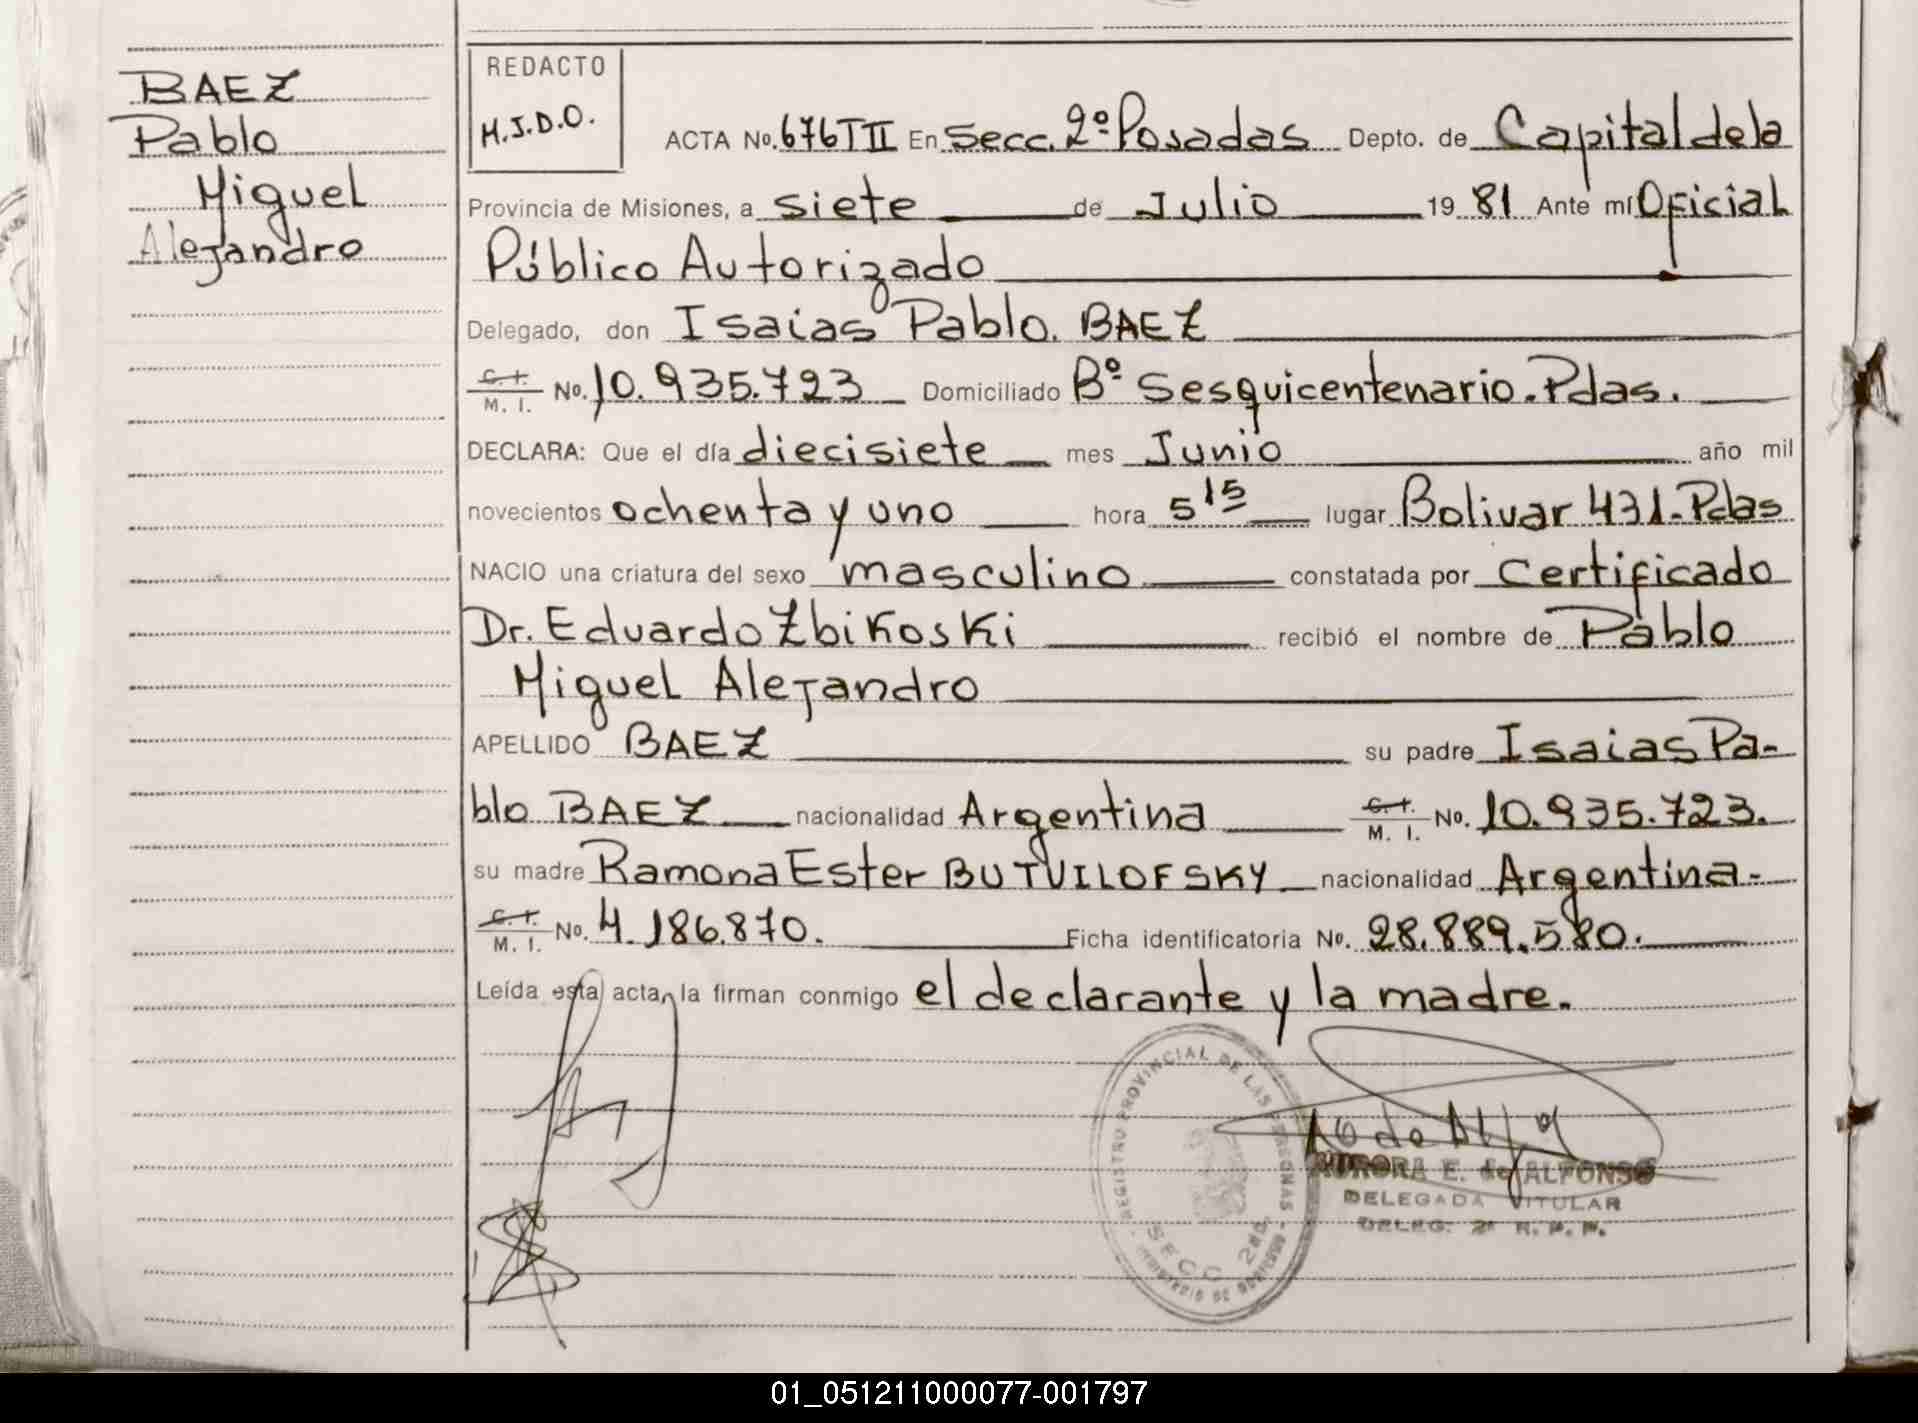 BAEZ
Pablo
Miguel
Alejandro
REDACTO
H.J.D.O.
ACTA No. 676 T II En Secc. 2º Posadas Depto. de Capital de la
Provincia de Misiones, a siete de Julio 19 81 Ante mí Oficial
Público Autorizado
Delegado, don Isaias Pablo. BAEZ
C. I. M. I. No. 10.935.723 Domiciliado Bº Sesquicentenario. Pdas.
DECLARA: Que el día diecisiete mes Junio año mil
novecientos ochenta y uno hora 5 15 lugar Bolivar 431- Pdas
NACIO una criatura del sexo masculino constatada por Certificado
Dr. Eduardo Zbikoski recibió el nombre de Pablo
Miguel Alejandro
APELLIDO BAEZ su padre Isaias Pa-
blo BAEZ nacionalidad Argentina C. I. M. I. No. 10.935.723.
su madre Ramona Ester BUTVILOFSKY nacionalidad Argentina-
C. I. M. I. No. 4.186.870. Ficha identificatoria No. 28.889.580.
Leída esta acta, la firman conmigo el declarante y la madre.
REGISTRO PROVINCIAL DE LAS PERSONAS
SECC 2da.
AURORA E. de ALFONSO
DELEGADA TITULAR
DELEG. 2ª R. P. P.
01_051211000077-001797